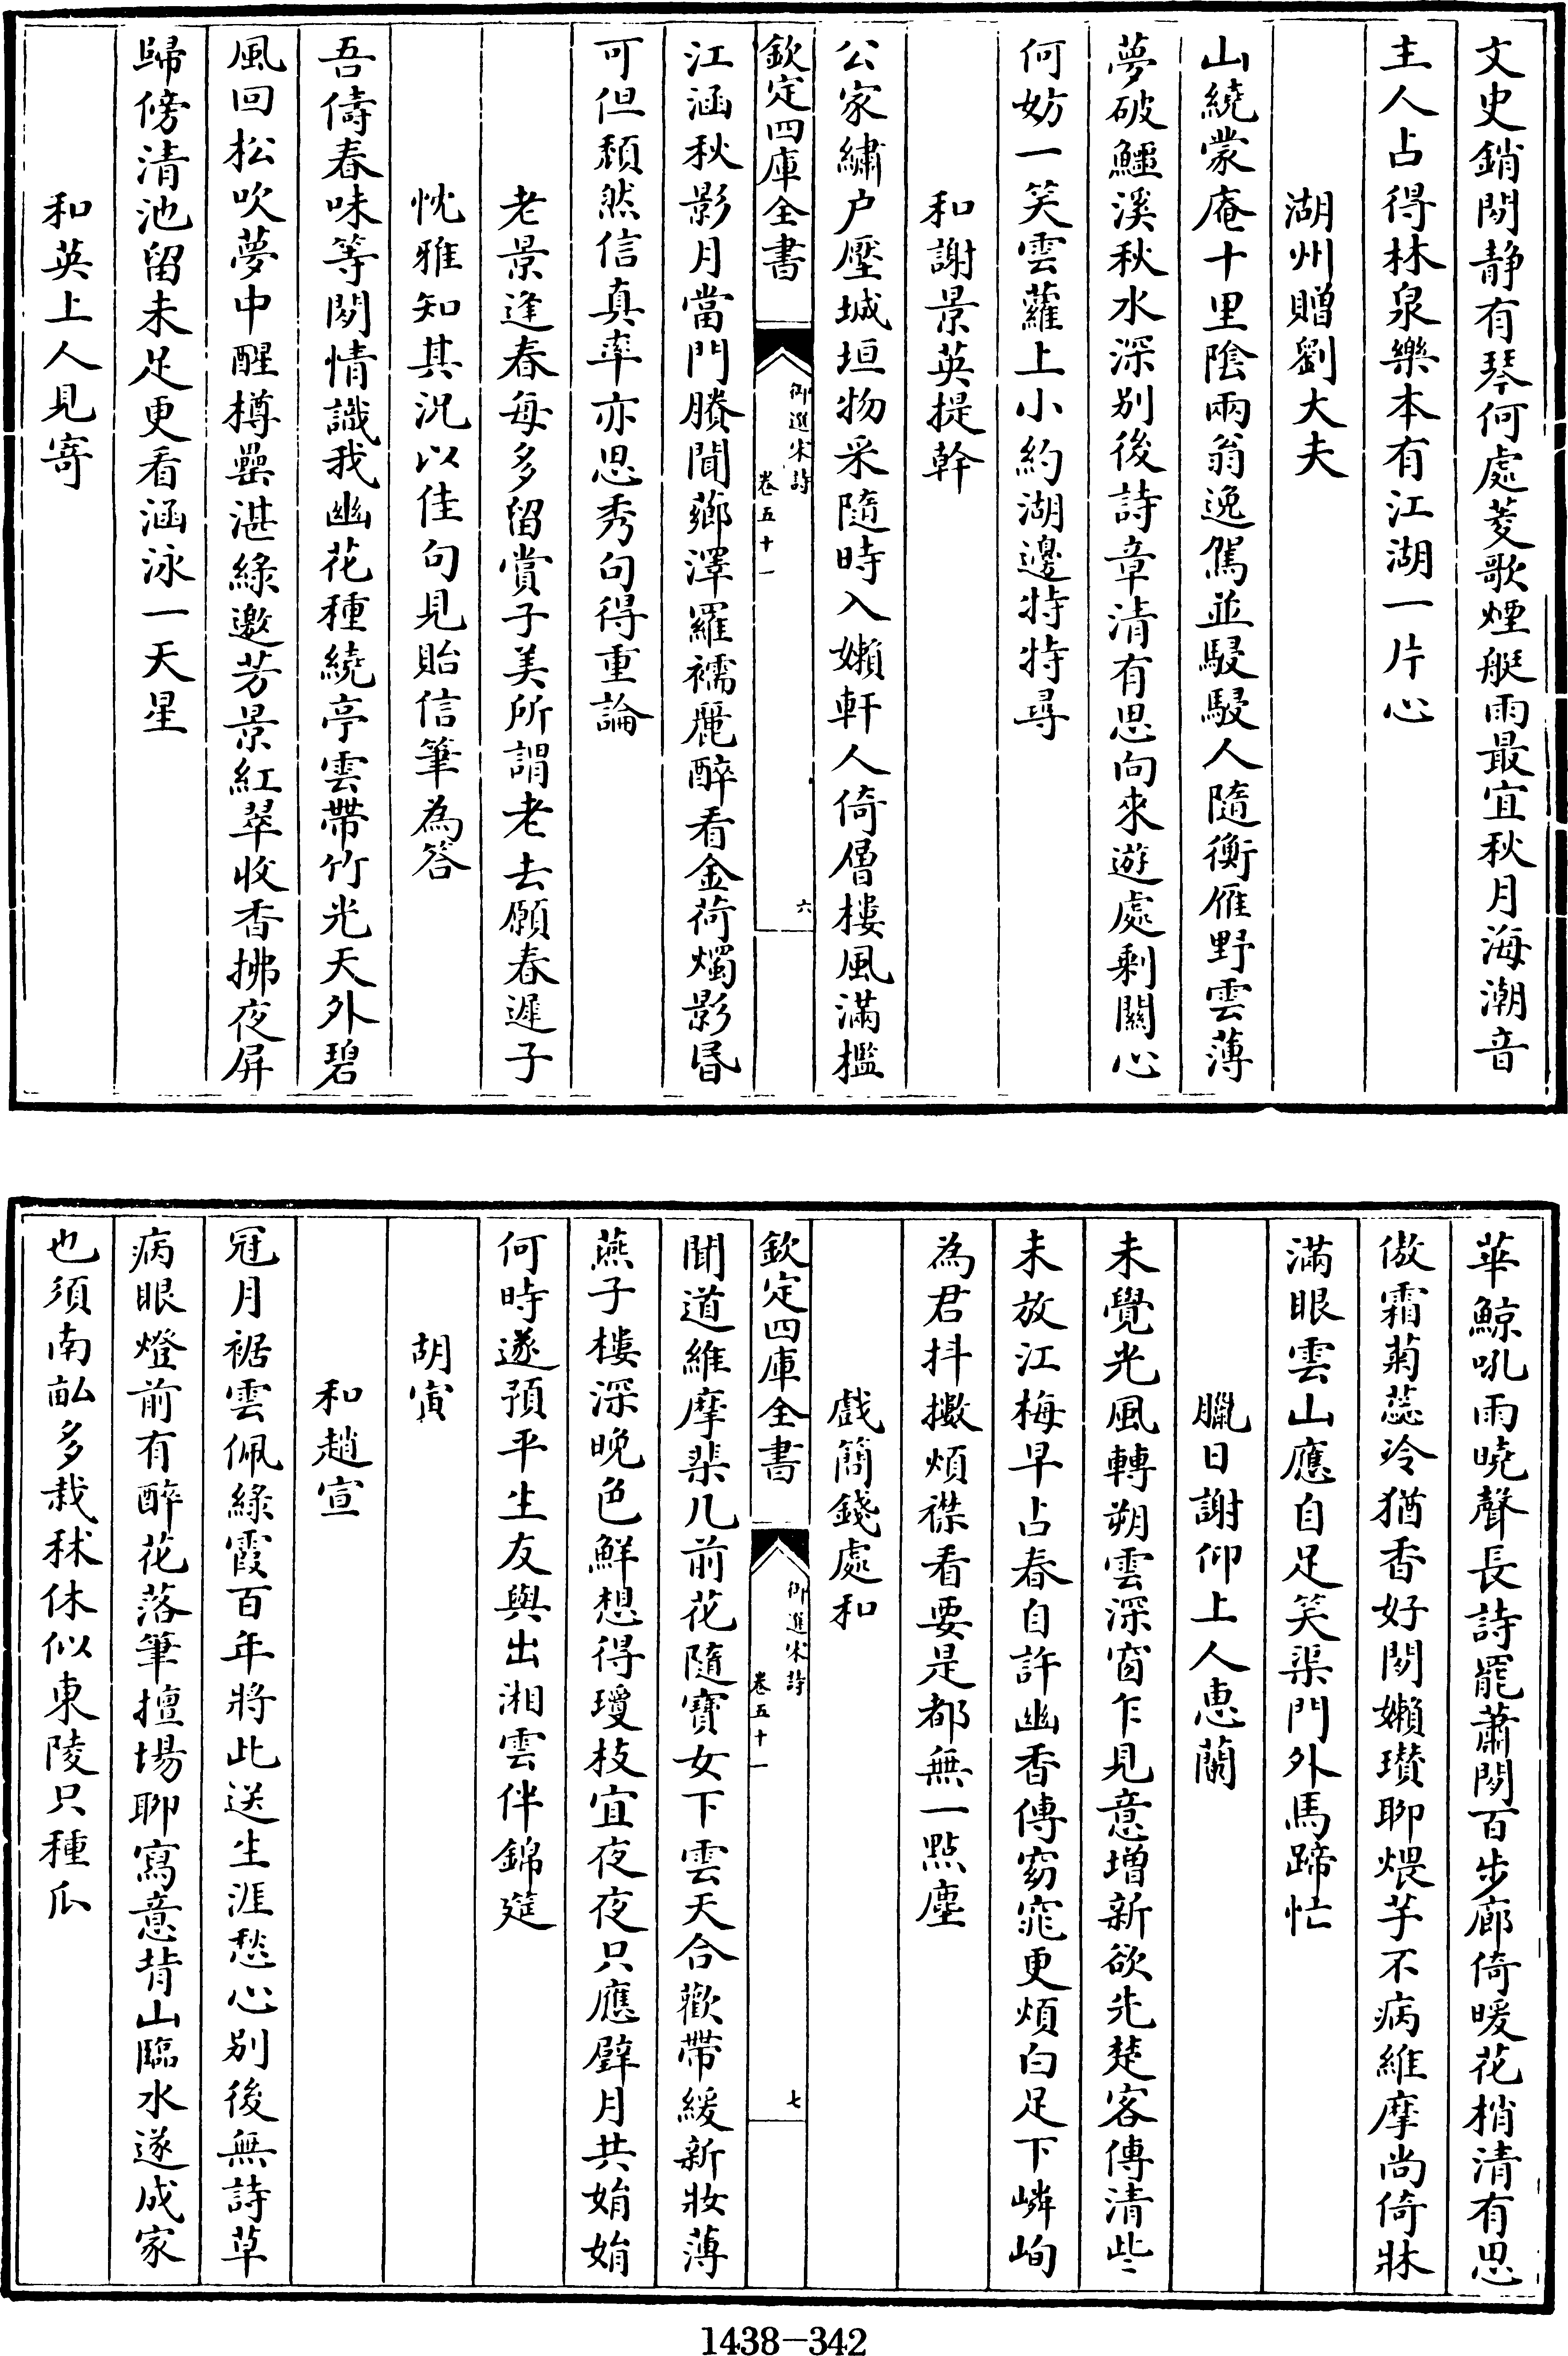 文史銷閑静有琴何處菱歌煙艇雨最宜秋月海潮音
主人占得林泉樂本有江湖一片心
湖州贈劉大夫
山繞蒙庵十里陰兩翁逸駕並駸駸人隨衡雁野雲薄
夢破鱷溪秋水深别後詩章清有思向來遊處剩關心
何妨一笑雲蘿上小約湖邊特特尋
和謝景英提幹
公家繡户壓城垣物采隨時入嬾軒人倚層樓風滿檻
欽定四庫全書
御選宋詩
卷五十一
六
江涵秋影月當門賸聞薌澤羅襦麗醉看金荷燭影昏
可但頽然信真率亦思秀句得重論
老景逢春每多留賞子美所謂老去願春遲子
忱雅知其況以佳句見貽信筆為答
吾儔春味等閑情識我幽花種繞亭雲帶竹光天外碧
風回松吹夢中醒樽罍湛綠邀芳景紅翠收香拂夜屏
歸傍清池留未足更看涵泳一天星
和英上人見寄
華鯨吼雨曉聲長詩罷蕭閑百步廊倚暖花梢清有思
傲霜菊蕊冷猶香好閑嬾瓚聊煨芋不病維摩尚倚牀
滿眼雲山應自足笑渠門外馬蹄忙
臘日謝仰上人惠蘭
未覺光風轉朔雲深窗乍見意增新欲先楚客傳清些
未放江梅早占春自許幽香傳窈窕更煩白足下嶙峋
為君抖擻煩襟看要是都無一點塵
戲簡錢處和
欽定四庫全書
御選宋詩
卷五十一
七
聞道維摩棐几前花隨寶女下雲天合歡帶緩新妝薄
燕子樓深晚色鮮想得瓊枝宜夜夜只應璧月共娟娟
何時遂預平生友與出湘雲伴錦筵
胡寅
和趙宣
冠月裾雲佩綠霞百年將此送生涯愁心别後無詩草
病眼燈前有醉花落筆擅場聊寫意背山臨水遂成家
也須南畝多栽秫休似東陵只種瓜
1438-342